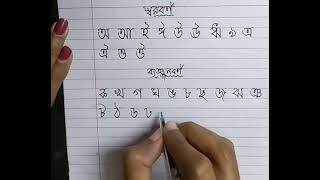 স্বরবর্ণ
অ আ ই ঈ উ ঊ ঋ ৯ এ
ঐ ও ঔ
ব্যঞ্জনবর্ণ
ক খ গ ঘ ঙ চ ছ জ ঝ ঞ
ট ঠ ড ঢ